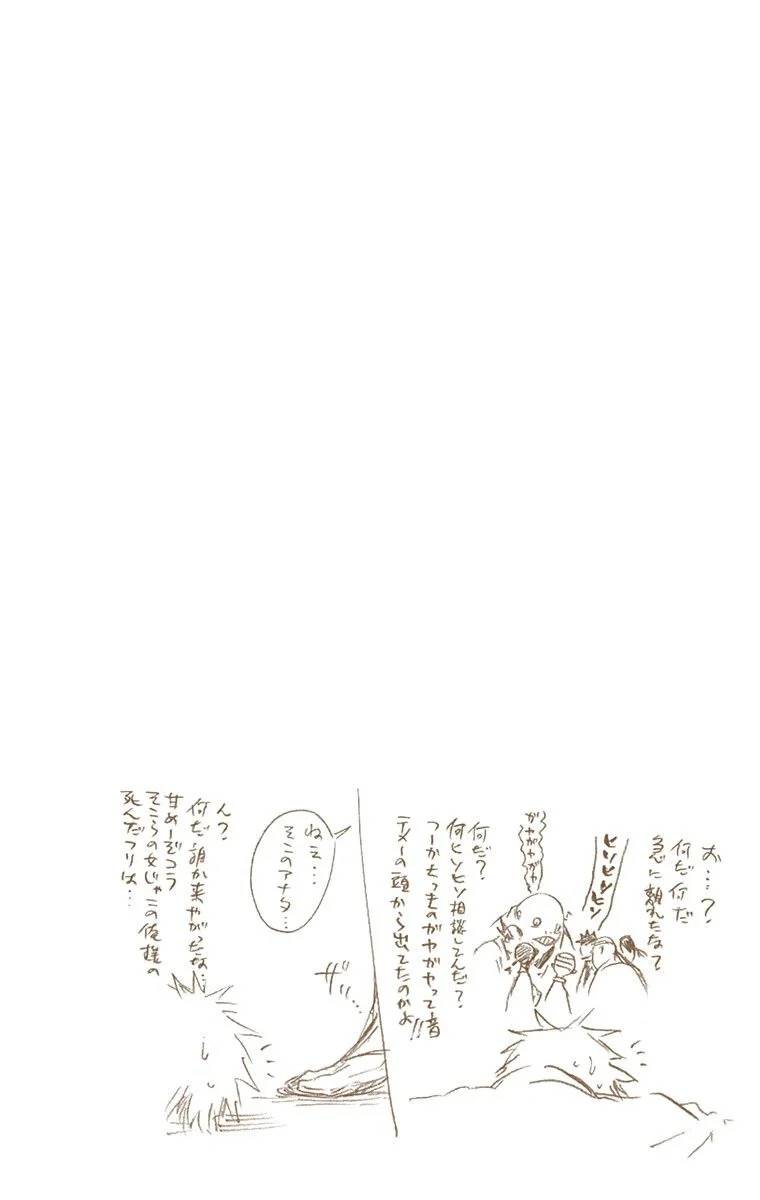 お…?
何だ何だ
急に離れたなて
ヒソヒソヒソ
ガヤガヤガヤ
何だ?
何ヒソヒソ相談してんだ?
つーかさっきのガヤガヤって音
テメーの頭から出てたのかよ!!
ねえ…
そこのアナタ…
ザッ…
ん?
何だ誰か来やがったな…
甘めーぞコラ
そこらの女じゃこの俺様の
死んだフリは…